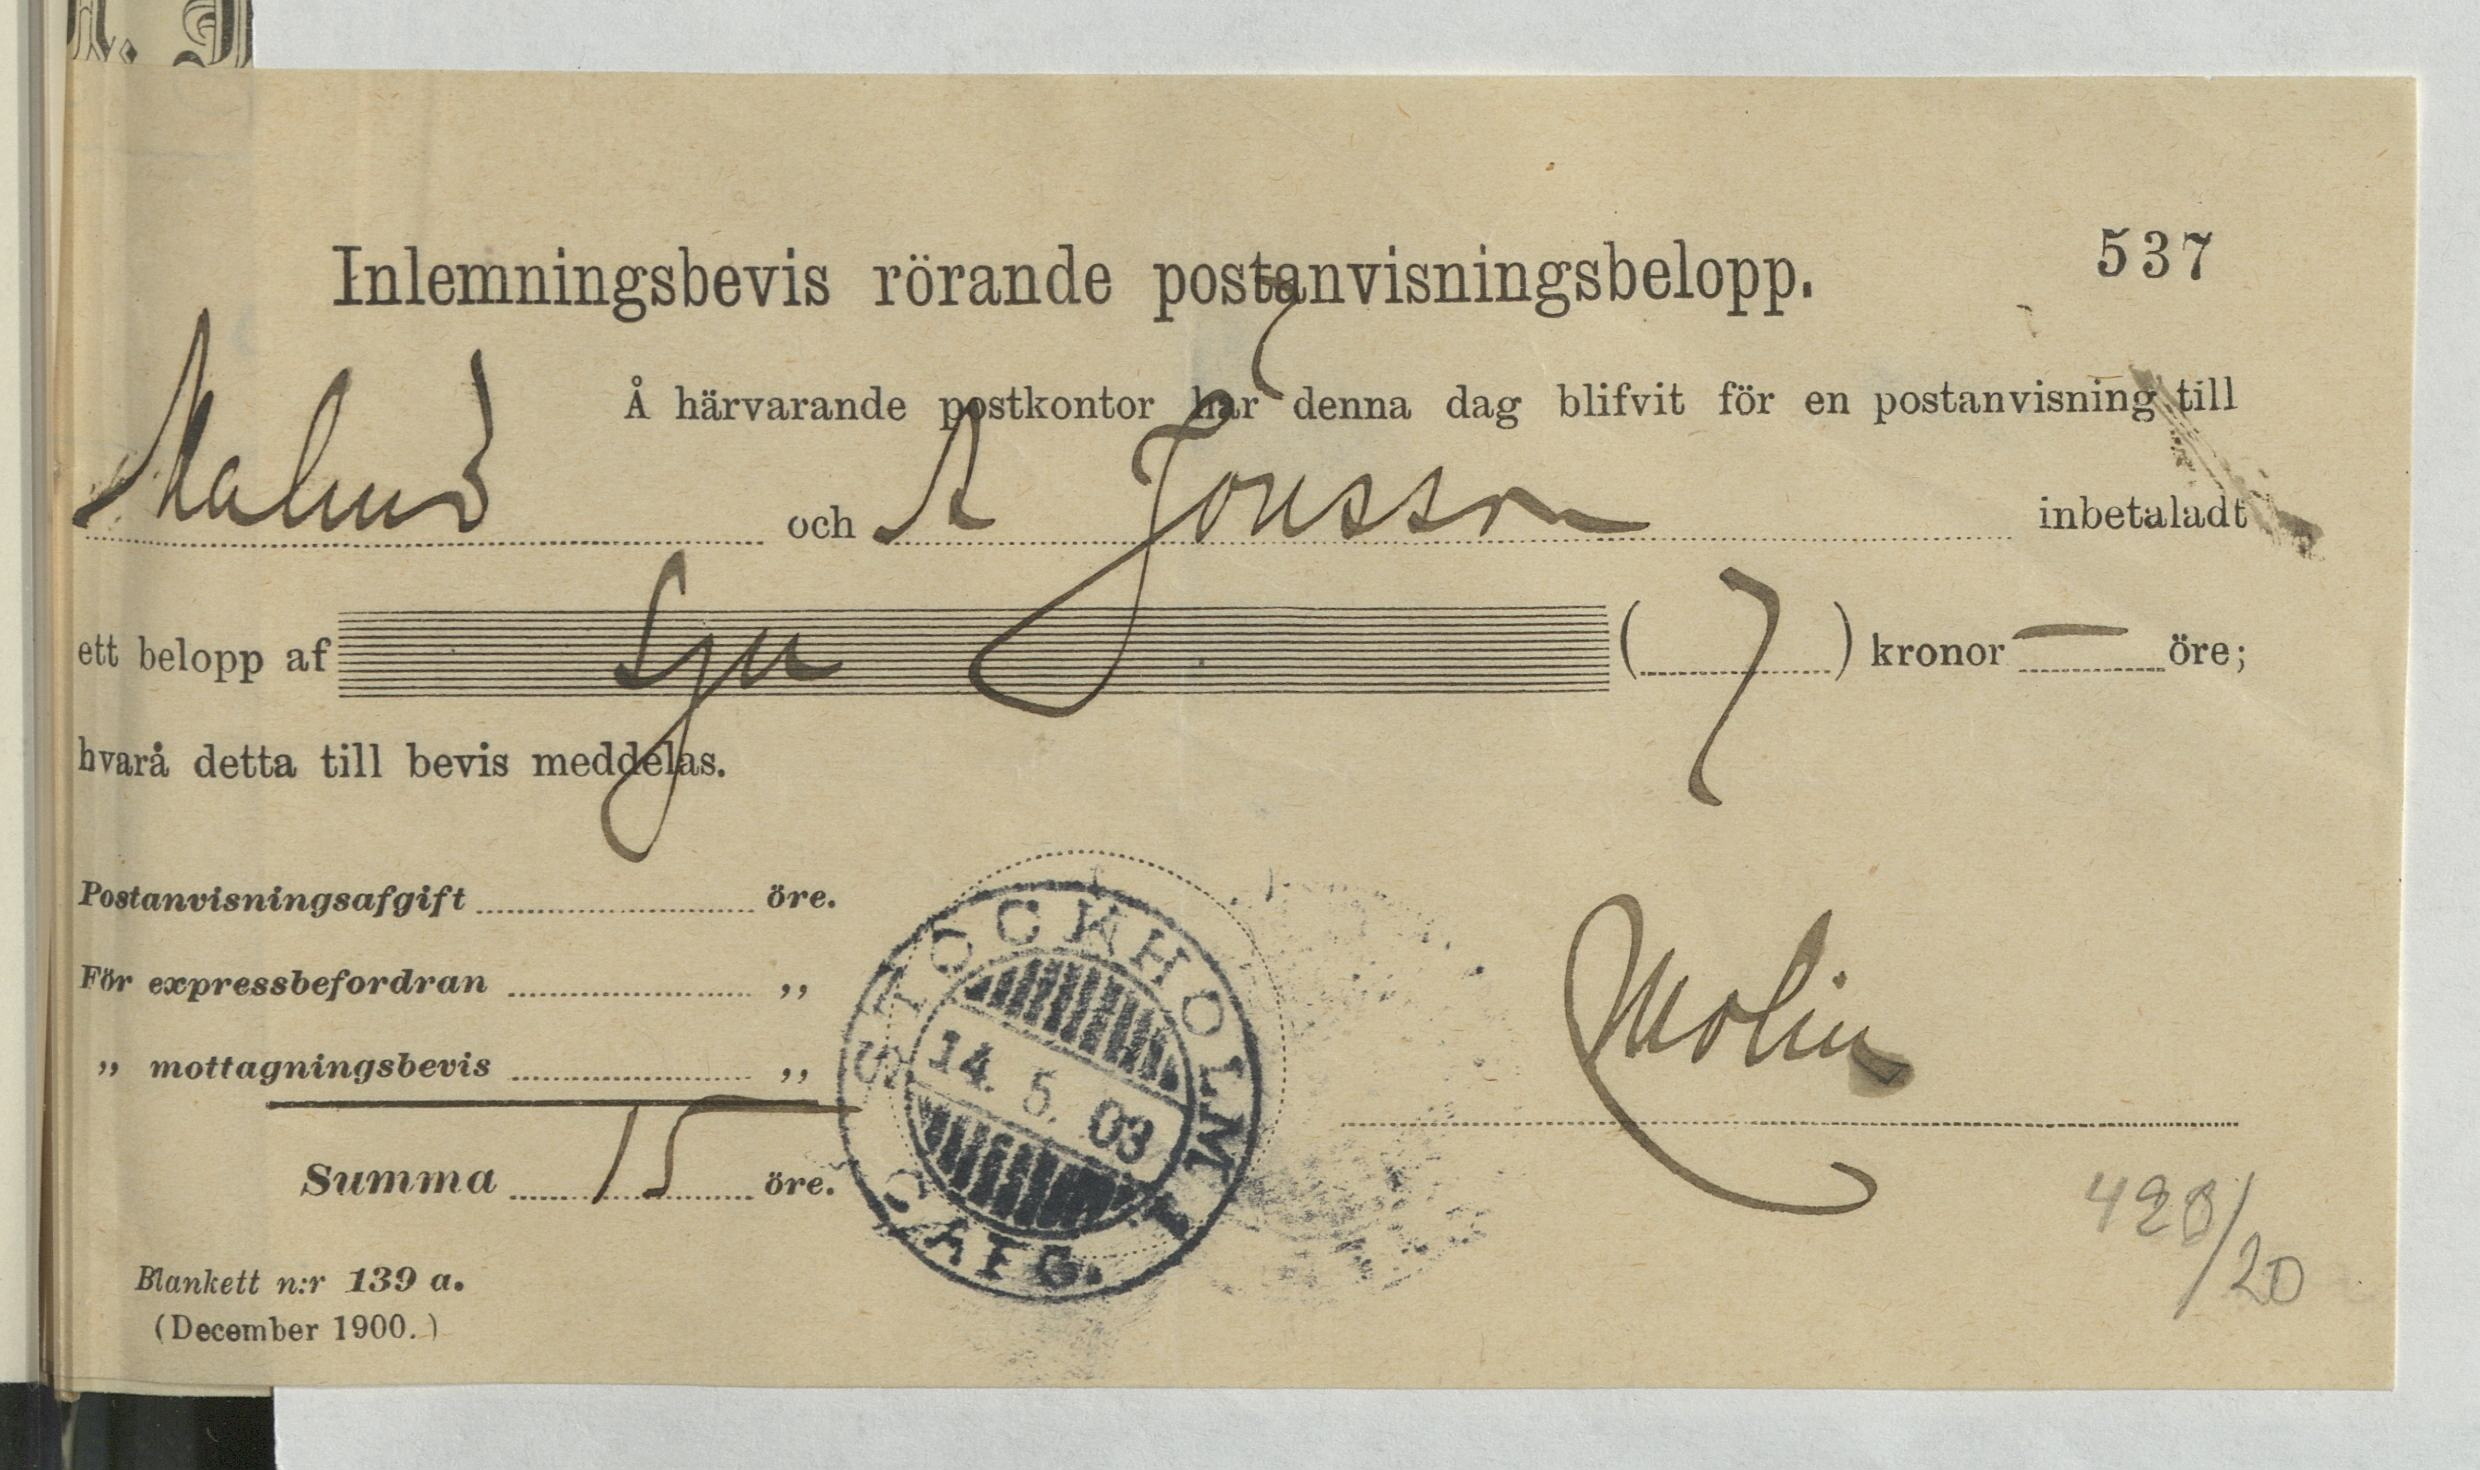 Inlemningsbevis rörande postanvisningsbelopp. 537
Å härvarande postkontor har denna dag blifvit för en postanvisning till
Malmö och A Jonsson inbetaladt
ett belopp af Sju (7) kronor — öre;
hvarå detta till bevis meddelas.
Postanvisningsafgift öre.
För expressbefordran ,,
,, mottagningsbevis ,,
Summa 15 öre.
STOCKHOLM 1
14. 5. 03
AFG.
Molin
420/20
Blankett n:r 139 a.
(December 1900.)